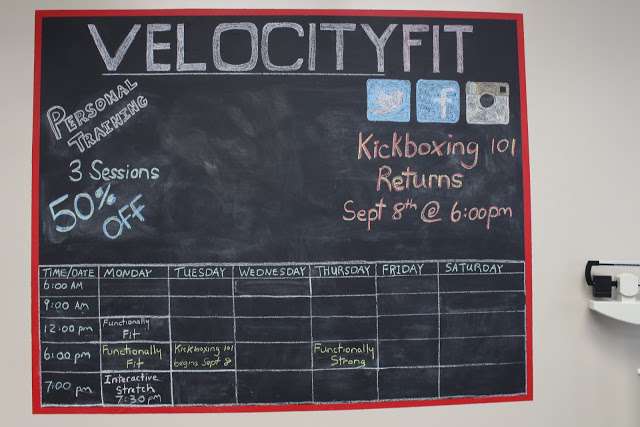 VELOCITYFIT
PERSONAL
TRAINING
3 Sessions
50%
OFF
f
Kickboxing 101
Returns
Sept 8th @ 6:00pm
TIME/DATE MONDAY TUESDAY WEDNESDAY THURSDAY FRIDAY SATURDAY
6:00 AM
9:00 AM
12:00 pm Functionally
Fit
6:00 pm Functionally Kickboxing 101 Functionally
Fit begins Sept 8 Strong
7:00 pm Interactive
Stretch
7:30 pm